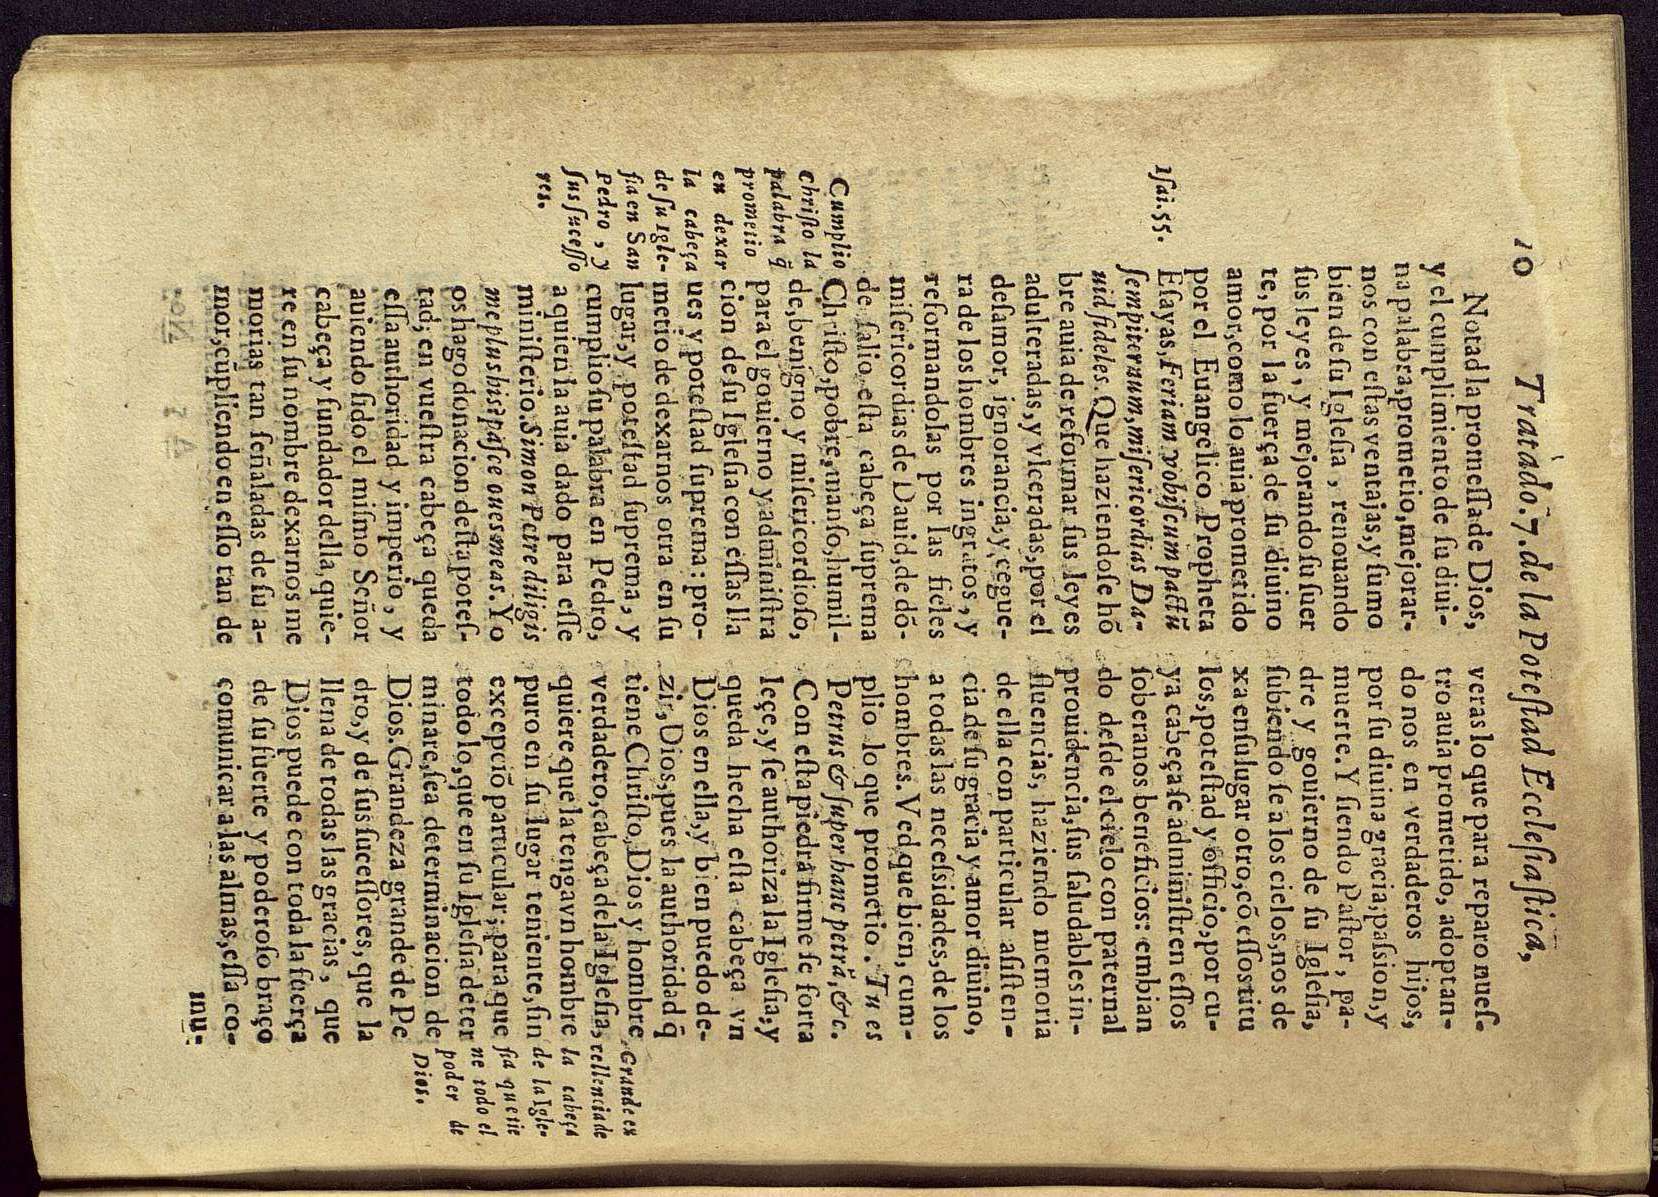 10 Tratado. 7. de la Poteſtad Eccleſiaſtica,
Notad la promeſſa de Dios,
y el cumplimiento de ſu diui-
na palabra, prometio, mejorar-
nos con eſtas ventajas, y ſumo
bien de ſu Igleſia, renouando
ſus leyes, y mejorando ſu ſuer
te, por la fuerça de ſu diuino
amor, como lo auia prometido
por el Euangelico Propheta
Eſayas, Feriam vobiſcum pactū
ſempiternum, miſericordias Da-
uid fideles. Que haziendoſe hō
bre auia de reformar ſus leyes
adulteradas, y vlceradas, por el
deſamor, ignorancia, y cegue-
ra de los hombres ingratos, y
reformandolas por las fieles
miſericordias de Dauid, de dō-
de ſalio eſta cabeça ſuprema
Chriſto, pobre, manſo, humil-
de, benigno y miſericordioſo,
para el gouierno y adminiſtra
cion de ſu Igleſia con eſſas lla
ues y poteſtad ſuprema: pro-
metio de dexarnos otra en ſu
lugar, y poteſtad ſuprema, y
cumplio ſu palabra en Pedro,
a quien la auia dado para eſſe
miniſterio. Simon Petre diligis
me plus his? paſce oues meas. Yo
os hago donacion deſta poteſ-
tad; en vueſtra cabeça queda
eſſa authoridad y imperio, y
auiendo ſido el miſmo Señor
cabeça y fundador della, quie-
re en ſu nombre dexarnos me
morias tan ſeñaladas de ſu a-
mor, cūpliendo en eſſo tan de
Iſai. 55.
Cumplio
Chriſto la
palabra q̄
prometio
en dexar
la cabeça
de ſu Igle-
ſia en San
Pedro, y
ſus ſuceſſo
res.
veras lo que para reparo nueſ-
tro auia prometido, adoptan-
do nos en verdaderos hijos,
por ſu diuina gracia, paſsion, y
muerte. Y ſiendo Paſtor, pa-
dre y gouierno de ſu Igleſia,
ſubiendo ſe a los cielos, nos de
xa en ſu lugar otro, cō eſſos titu
los, poteſtad y officio, por cu-
ya cabeça ſe adminiſtren eſſos
ſoberanos beneficios: embian
do deſde el cielo con paternal
prouidencia, ſus ſaludables in-
fluencias, haziendo memoria
de ella con particular aſiſten-
cia de ſu gracia y amor diuino,
a todas las neceſsidades, de los
hombres. Ved que bien, cum-
plio lo que prometio. Tu es
Petrus & ſuper hanc petrā, &c.
Con eſta piedra firme ſe forta
leçe, y ſe authoriza la Igleſia; y
queda hecha eſta cabeça vn
Dios en ella, y bien puedo de-
zir, Dios, pues la authoridad q̄
tiene Chriſto, Dios y hombre
verdadero, cabeça de la Igleſia,
quiere que la tenga vn hombre
puro en ſu lugar teniente, ſin
excepciō particular; para que
todo lo, que en ſu Igleſia deter
minare, ſea determinacion de
Dios. Grandeza grande de Pe
dro, y de ſus ſuceſſores, que la
llena de todas las gracias, que
Dios puede con toda la fuerça
de ſu fuerte y poderoſo braço
comunicar a las almas, eſſa co-
Grande ex
cellencia de
la cabeça
de la Igle-
ſia que tie
ne todo el
poder de
Dios.
mu-